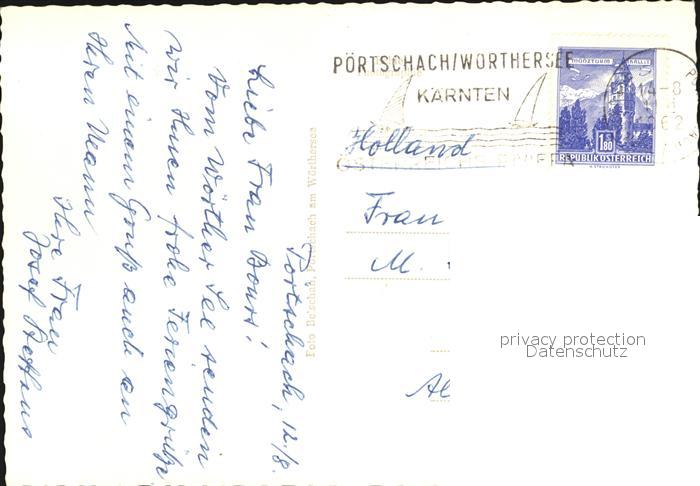 PÖRTSCHACH/WÖRTHERSEE
KÄRNTEN
MÜNZTURM HALL I.T.
1.80
REPUBLIK ÖSTERREICH
14-8
62
Holland
Frau
M.
Al
privacy protection
Datenschutz
Foto Betschaß, Pörtschach am Wörthersee
Pörtschach, 12./8.
Liebe Frau Bours!
Vom Wörther See senden
wir Ihnen frohe Feriengrüße
Mit einem Gruß auch an
Ihren Mann
Ihre Frau
Josef